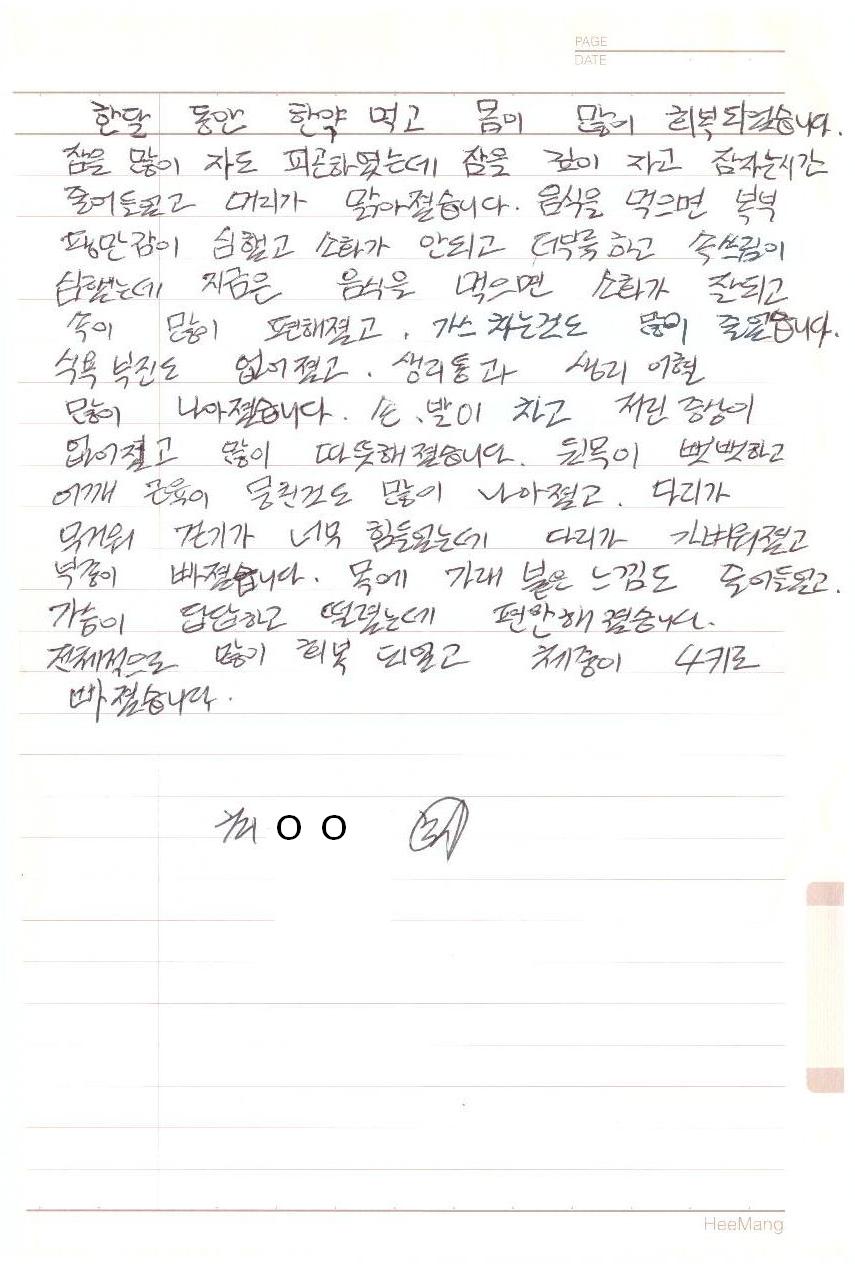 PAGE
DATE
한달 동안 한약 먹고 몸이 많이 회복되었습니다.
잠을 많이 자도 피곤하였는데 잠을 깊이 자고 잠자는시간
줄어들었고 머리가 맑아졌습니다. 음식을 먹으면 복부
팽만감이 심했고 소화가 안되고 더부룩하고 속쓰림이
심했는데 지금은 음식을 먹으면 소화가 잘되고
속이 많이 편해졌고, 가스 차는것도 많이 줄었습니다.
식욕 부진도 없어졌고, 생리통과 생리 어혈
많이 나아졌습니다. 손, 발이 차고 저린 증상이
없어졌고 많이 따뜻해졌습니다. 뒷목이 뻣뻣하고
어깨 근육이 뭉친것도 많이 나아졌고, 다리가
무거워 걷기가 너무 힘들었는데 다리가 가벼워졌고
부종이 빠졌습니다. 목에 가래 붙은 느낌도 줄어들었고,
가슴이 답답하고 떨렸는데 편안해졌습니다.
전체적으로 많이 회복 되었고 체중이 4키로
빠졌습니다.
최 O O
HeeMang